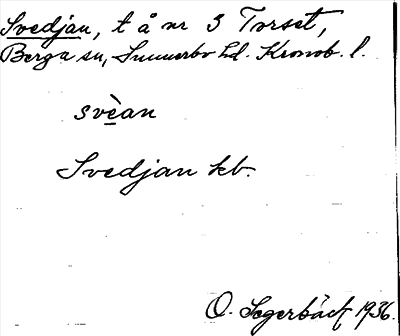 Svedjan, t å nr 3 Torset,
Berga sn, Sunnerbo hd. Kronob. l.
svèan
Svedjan kb.
O. Segerbäck 1936.